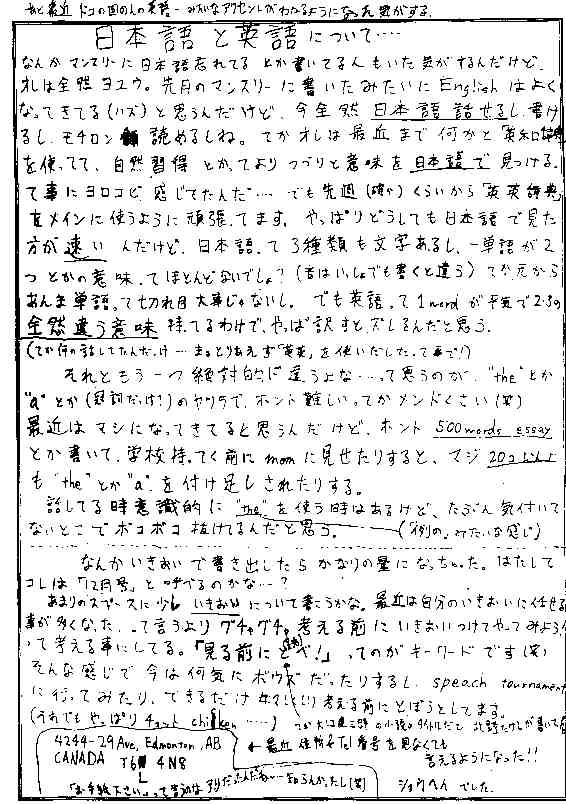 あと最近 ドコの国の人の英語-みたいなアクセントがわかるようになった気がする.
日本語と英語について….
なんか マンスリーに 日本語忘れてる とか書いてる人もいた気がするんだけど、
オレは全然 ヨユウ。先月のマンスリーに書いたみたいに English はよく
なってきてる(ハズ)と思うんだけど、今全然 日本語 話せるし、書け
るし、モチロン 読めるしね。てかオレは最近まで何かと「英和辞典」
を使ってて、自然習得 とかってよりつづりと意味を日本語で見つける。
って事にヨロコビ 感じてたんだ…でも先週(確か)くらいから「英英辞典」
をメインに使うように頑張ってます。やっぱりどうしても日本語で見た
方が速いんだけど、日本語って3種類も文字あるし、一単語が2
つとかの意味ってほとんどないでしょ?(音はいっしょでも書くと違う)てか元から
あんま単語って切れ目大事じゃないし。でも英語って1wordが平気で2・3の
全然違う意味 持てるわけで、やっぱ訳すと、ズレるんだと思う。
(てか何の話してたんだっけ…まぁとりあえず「英英」を使いだしたって事で!)
それともう一つ絶対的に違うよな…って思うのが、"the"とか
"a"とか(冠詞だっけ?)のヤツラで、ホント難しいってかメンドくさい(笑)
最近はマシになってきてると思うんだけど、ホント 500words essay
とか書いて、学校持ってく前にmomに見せたりすると、マジ20コ以上
も"the"とか"a"を付け足しされたりする。
話してる時意識的に"the"を使う時はあるけど、たぶん気付いて
ないとこでボコボコ抜けてるんだと思う。(「例の」みたいな感じ)
なんかいきおいで書き出したらかなりの量になっちゃった。はたして
コレは「12月号」と呼べるのかな…?
あまりのスペースに少しいきおいについて書こうかな。最近は自分のいきおいに任せる
事が多くなった…って言うよりグチャグチャ考える前にいきおいつけてやってみよう
って考える事にしてる。「見る前にとべ!」ってのがキーワードです(笑)
そんな感じで今は何気にボウズだったりするし、speach tournament
に行ってみたり、できるだけ 考える前にとぼうとしてます。
(それでもやっぱりチョット chicken ……)
4244-29 Ave, Edmonton, AB
CANADA T6L 4N8
←最近 住所もTel番号を見なくても
言えるようになった!!
ショウヘイ でした。